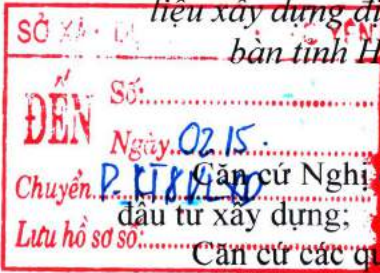 liệu xây dựng đi
bàn tỉnh H
SỞ XÂ YÊN
ĐẾN
Số:
Ngày 02 15.
Chuyển P. KT&
Lưu hồ sơ số:
Căn cứ Nghị
đầu tư xây dựng;
Căn cứ các qu